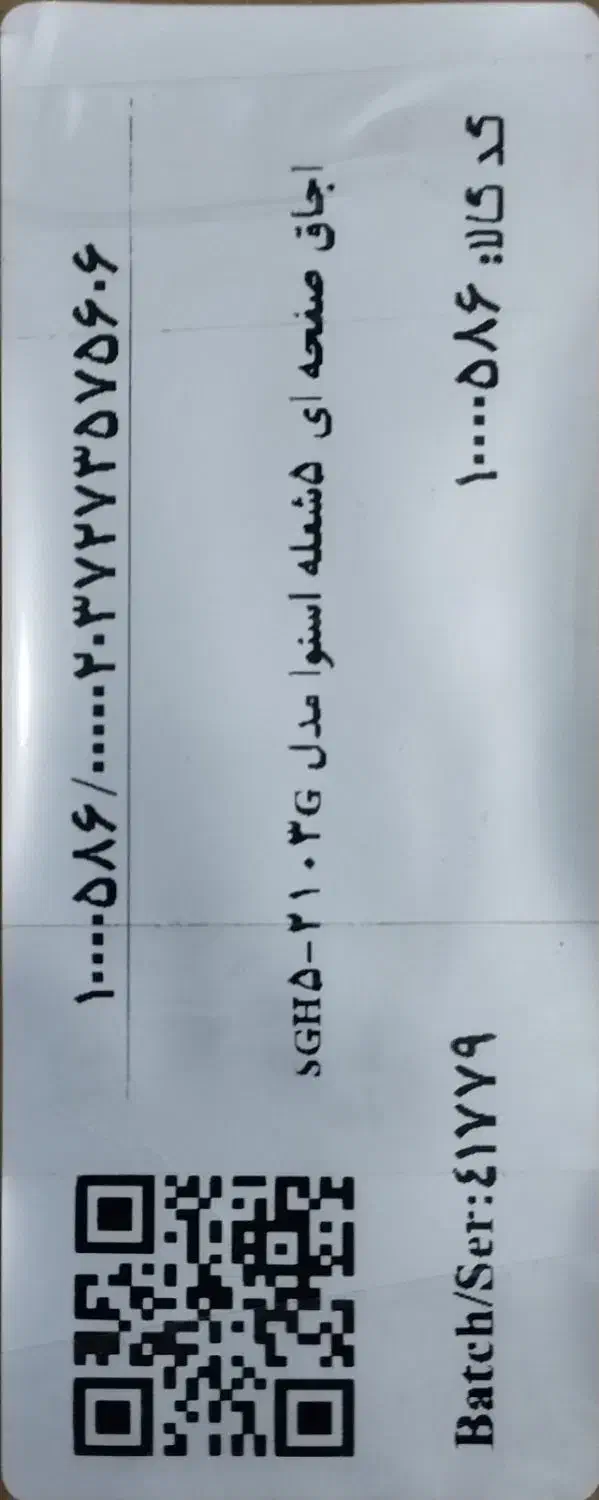 ۱۰۰۰۰۵۸۶/۰۰۰۰۰۰۲۰۳۷۲۷۳۵۷۵۶۰۶
اجاق صفحه ای ۵شعله اسنوا مدل SGH۵-۲۱۰۳G
کد کالا: ۱۰۰۰۰۵۸۶
Batch/Ser:٤۱۷۷۹